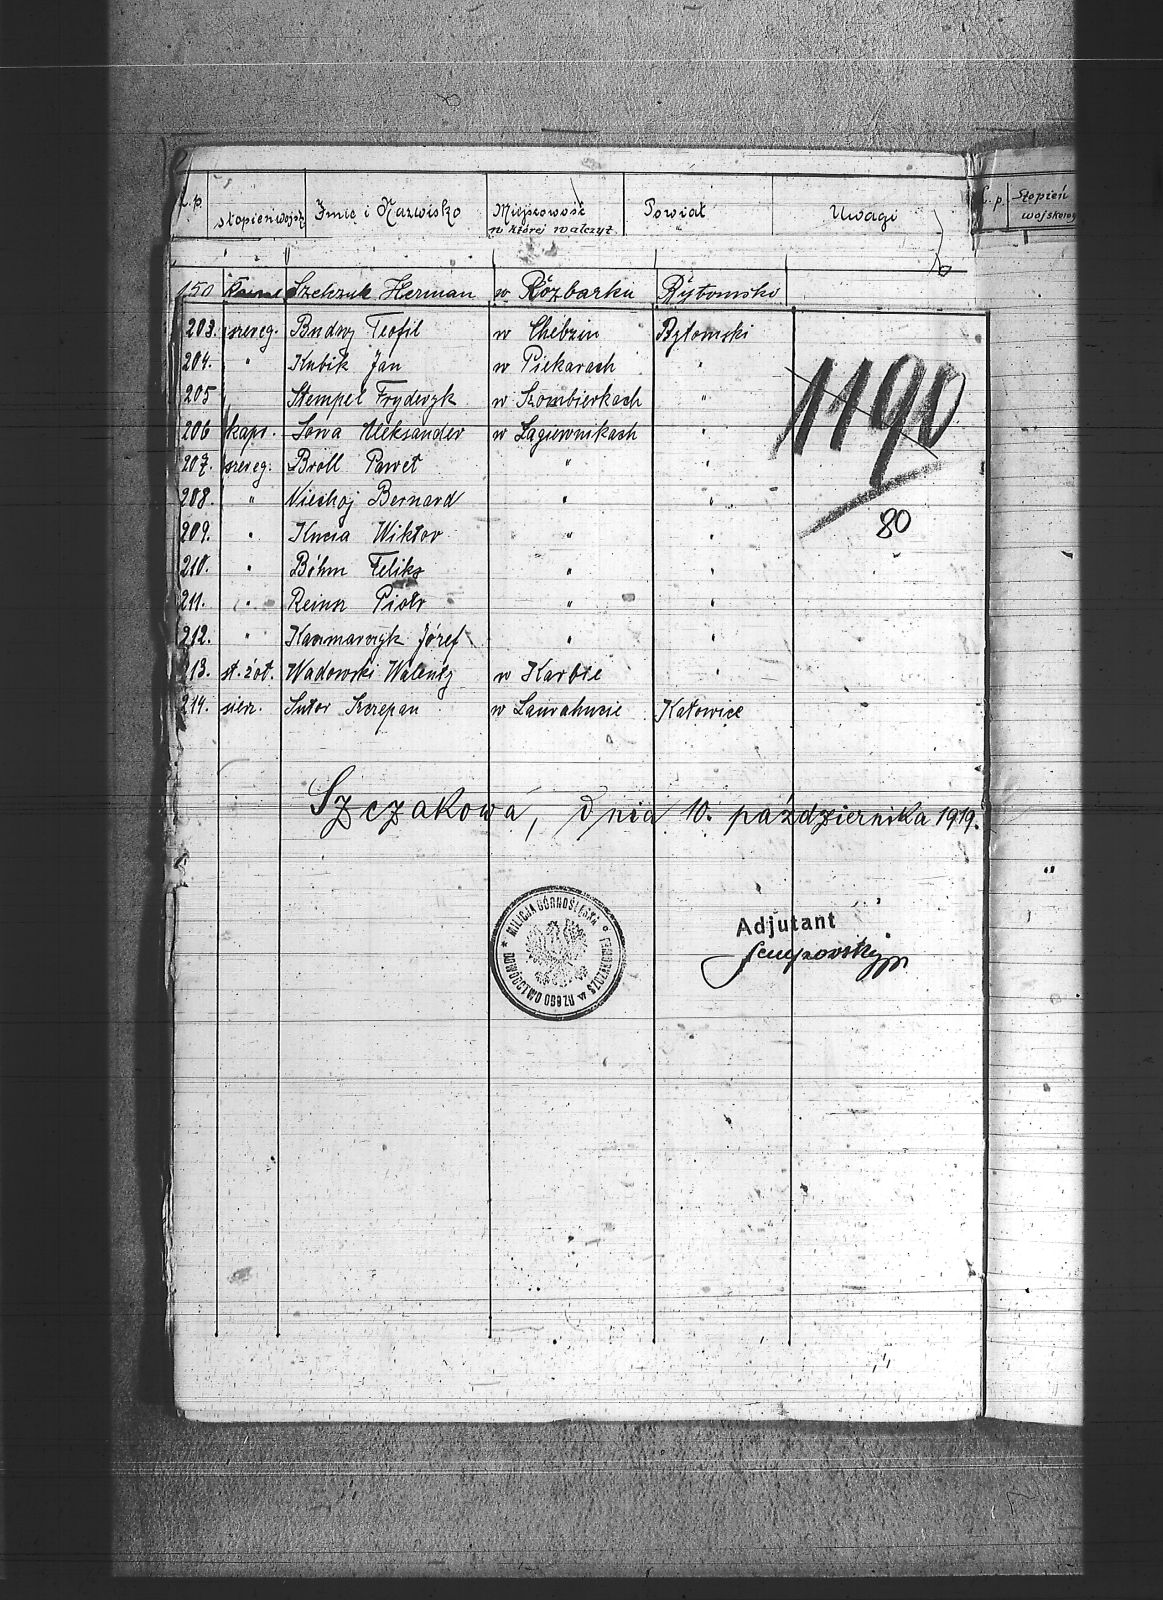 L.p. Stopień wojsk. Imię i Nazwisko Miejscowość w której walczył Powiat Uwagi
L.p. Stopień wojskowy
150 Szelczuk Herman w Rózbarku Bytomsko
203. szereg. Budny Teofil w Chebzin Bytomski
204. " Kubik Jan w Piekarach "
205 Stempel Fryderyk w Szombierkach "
206 kapr. Sowa Aleksander w Łagiewnikach "
207. szereg. Broll Paweł " "
208. " Niechoj Bernard " "
209. " Kucia Wiktor " "
210. " Böhm Feliks " "
211. " Piotr " "
212. " Kaczmarczyk Józef " "
213. st. żoł. Wadowski Walenty w Karbie "
214. sierż. Sutor Szczepan w Laurahucie Katowice
1190
80
Szczakowa, dnia 10. października 1919.
MILICJA GÓRNOŚLĄSKA
DOWÓDZTWO OBOZU w SZCZAKOWEJ
Adjutant